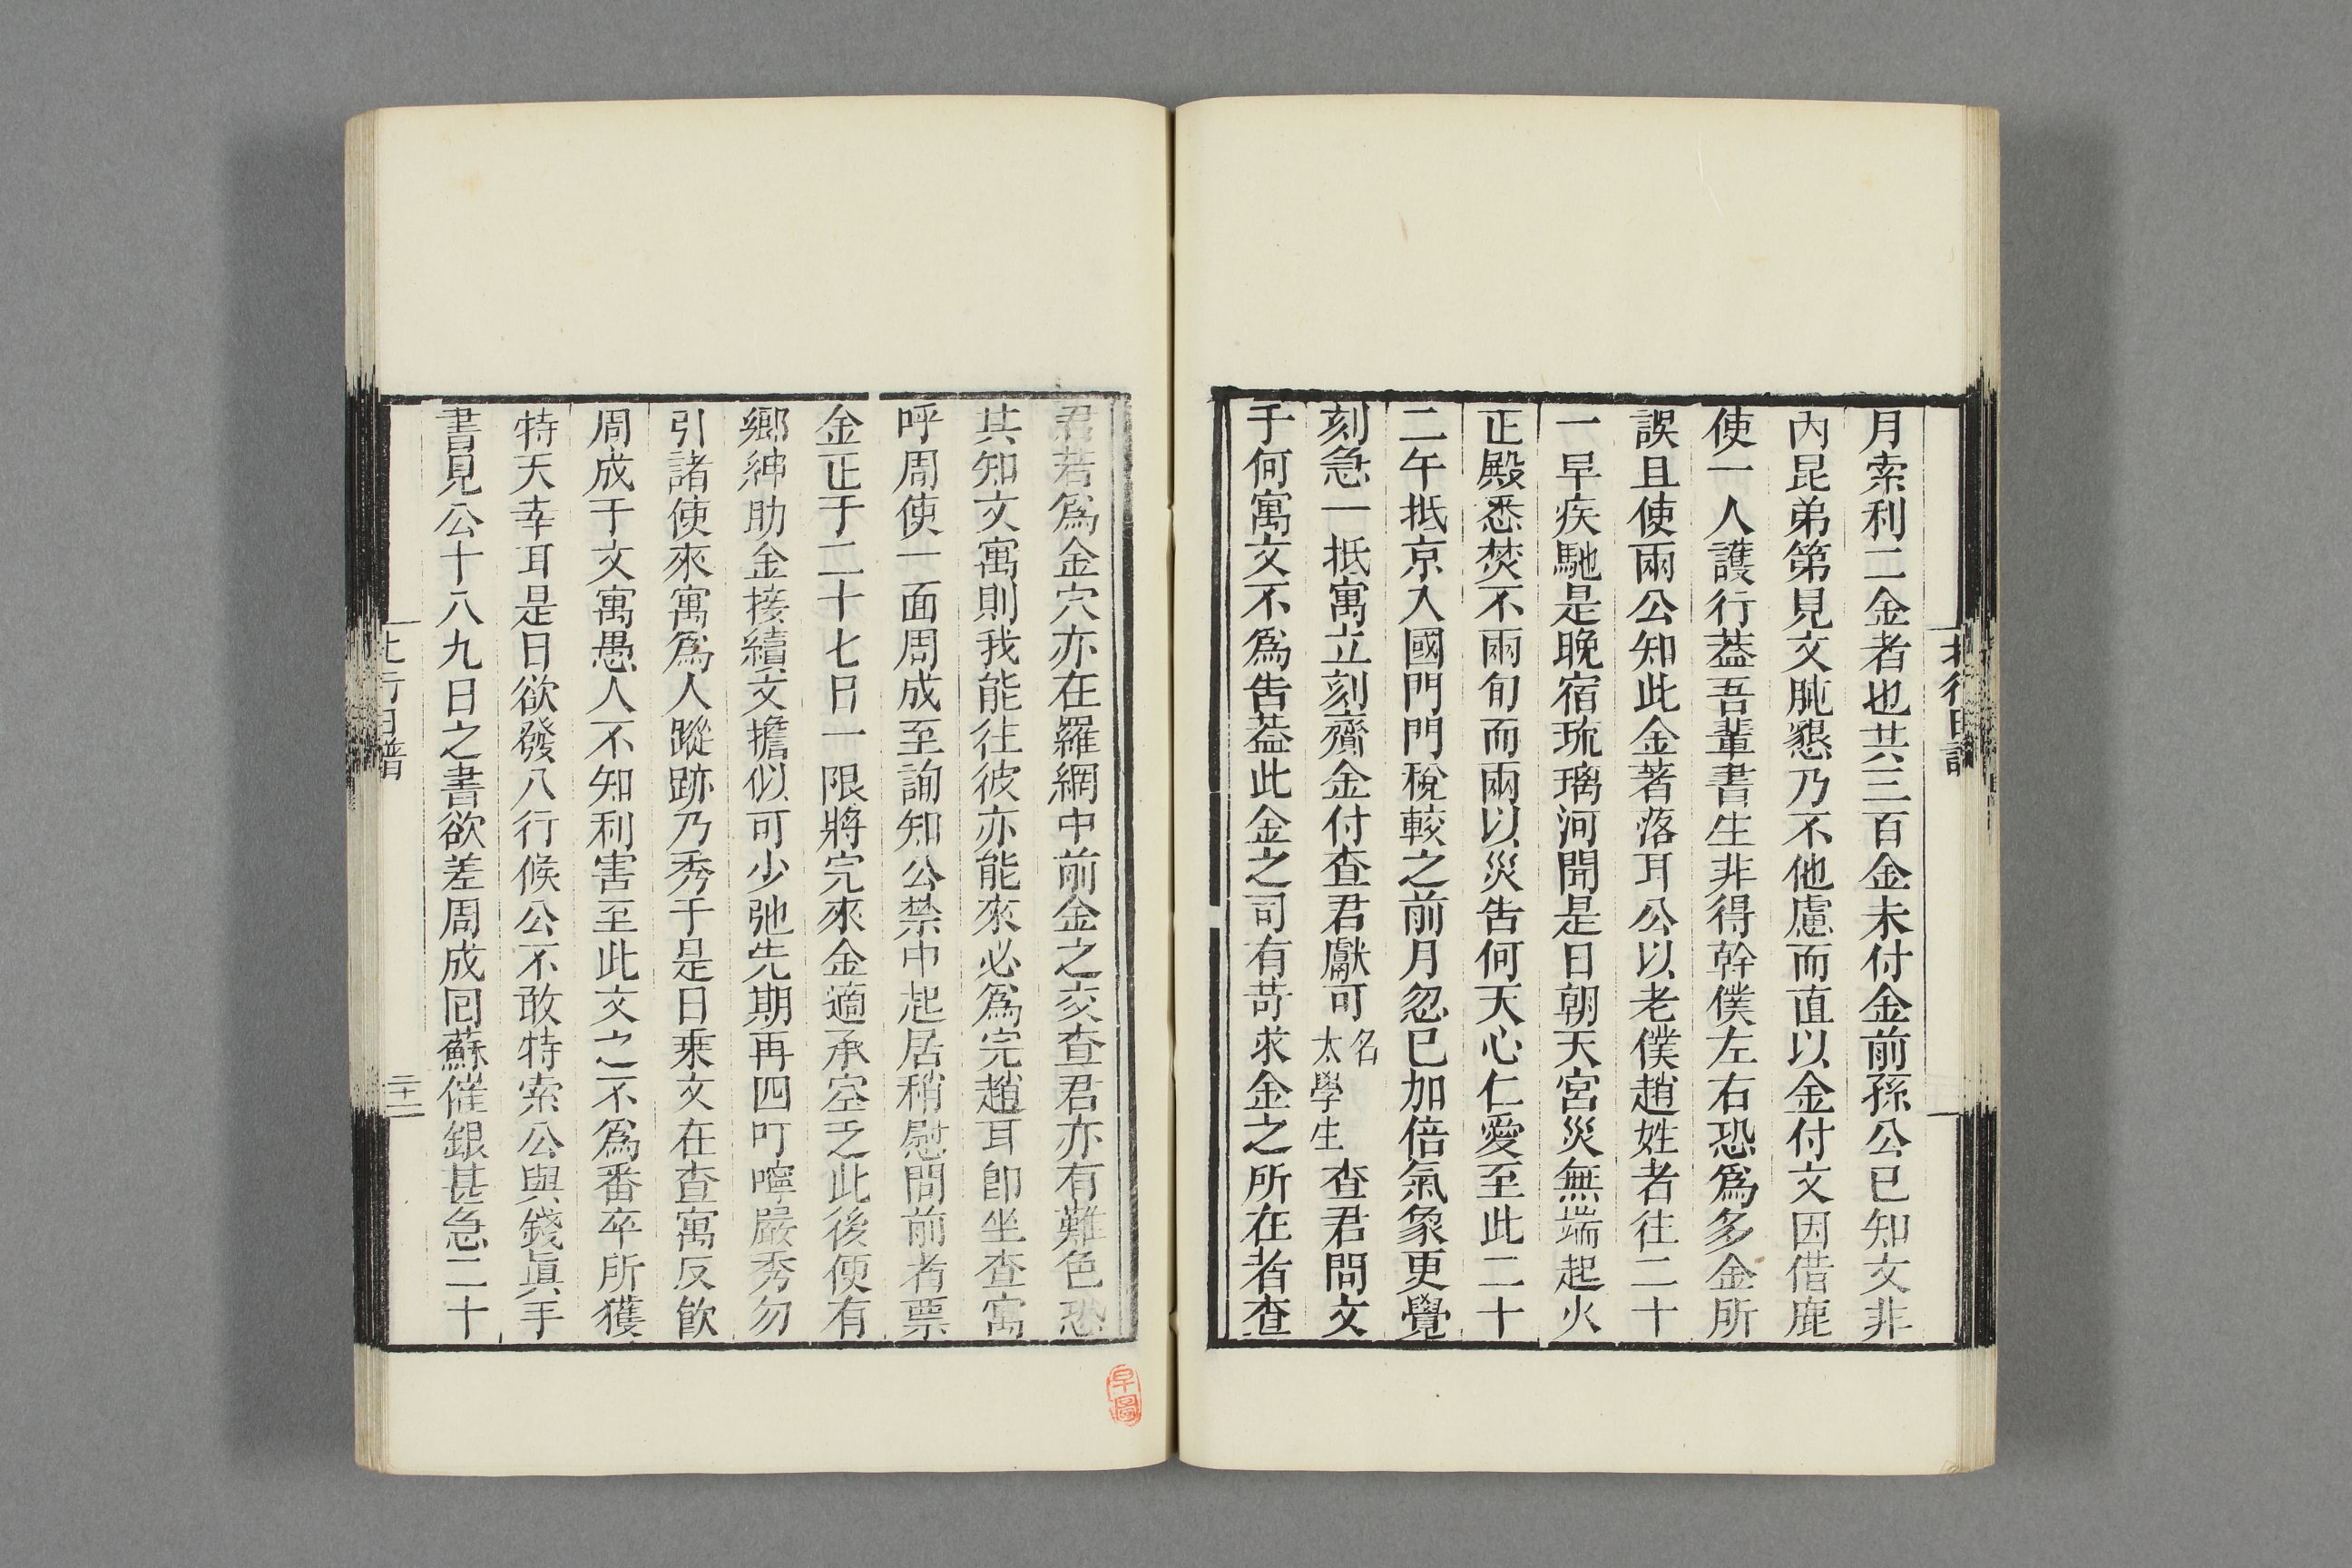 月索利二金者也共三百金未付金前孫公已知文非
內昆弟第見文肫懇乃不他慮而直以金付文因借鹿
使一人護行葢吾輩書生非得幹僕左右恐爲多金所
誤且使兩公知此金著落耳公以老僕趙姓者往二十
一早疾馳是晚宿琉璃河開是日朝天宮災無端起火
正殿悉焚不雨旬而雨以災告何天心仁愛至此二十
二午抵京入國門門稅較之前月忽已加倍氣象更覺
刻急一抵寓立刻齎金付查君獻可名太學生查君問文
于何寓文不爲告葢此金之司有苛求金之所在者查
君若爲金穴亦在羅網中前金之交查君亦有難色恐
其知文寓則我能往彼亦能來必爲完趙耳卽坐查寓
呼周使一面周成至詢知公禁中起居稍慰問前者票
金正于二十七日一限將完來金適承空乏此後便有
鄉紳助金接續文擔似可少弛先期再四叮嚀嚴秀勿
引諸使來寓爲人蹤跡乃秀于是日乘文在查寓反飮
周成于文寓愚人不知利害至此文之不爲番卒所獲
特天幸耳是日欲發八行候公不敢特索公與錢眞手
書見公十八九日之書欲差周成囘蘇催銀甚急二十
北行日譜
二十二
早圖